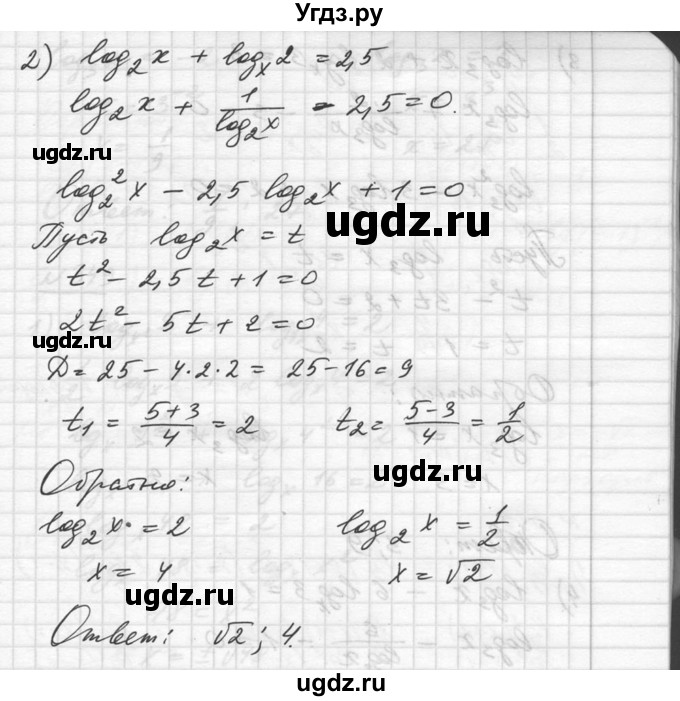 Угдз.ру
2) log₂x + logₓ2 = 2,5
log₂x + 1/log₂x - 2,5 = 0.
ugdz.ru
log₂²x - 2,5 log₂x + 1 = 0
ugdz.ru
Пусть log₂x = t
t² - 2,5t + 1 = 0
2t² - 5t + 2 = 0
ugdz.ru
D = 25 - 4·2·2 = 25 - 16 = 9
t₁ = (5+3)/4 = 2 t₂ = (5-3)/4 = 1/2
ugdz.ru
Обратно:
log₂x = 2 log₂x = 1/2
x = 4 x = √2
ugdz.ru
Ответ: √2; 4.
ugdz.ru